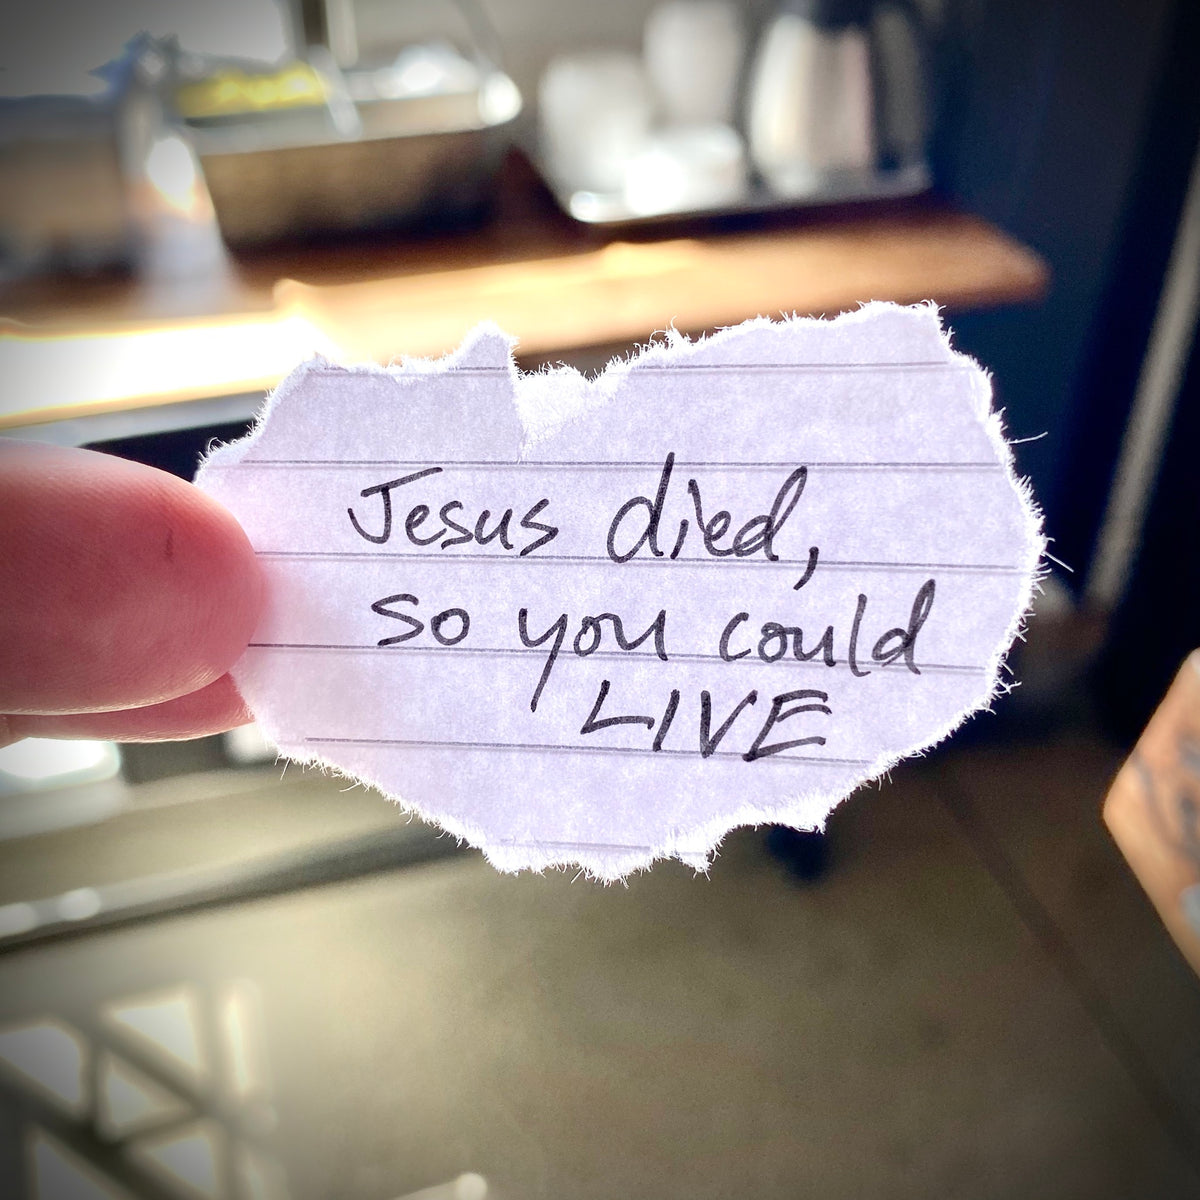 Jesus died,
so you could
LIVE